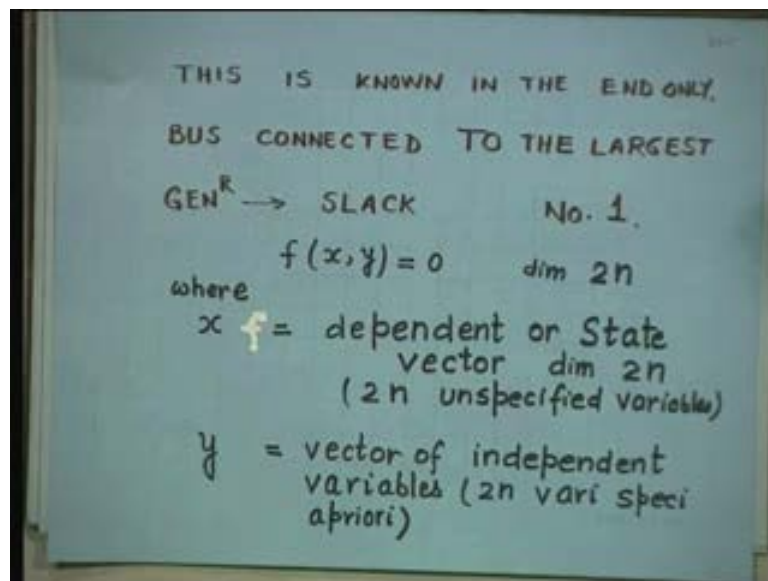 THIS IS KNOWN IN THE END ONLY.
BUS CONNECTED TO THE LARGEST
GEN^R → SLACK No. 1.
f(x,y) = 0 dim 2n
where
x f = dependent or State
vector dim 2n
(2n unspecified variables)
y = vector of independent
variables (2n vari speci
apriori)